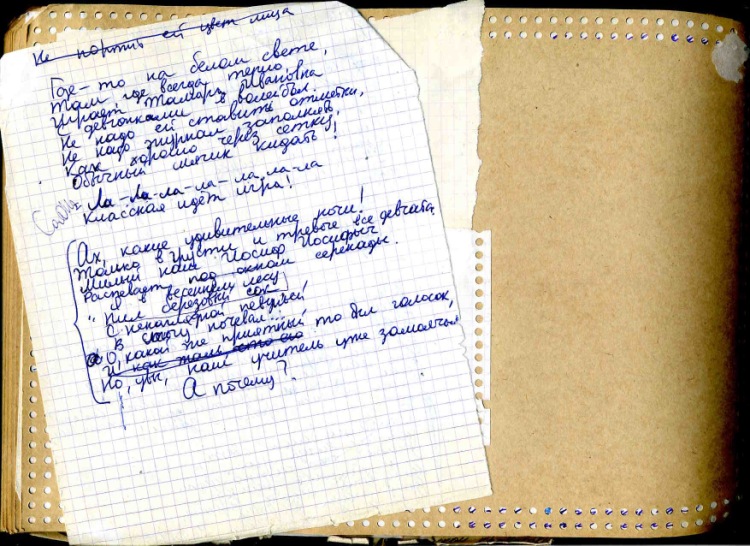 Не портить ей цвет лица
Где-то на белом свете,
Там, где всегда тепло,
Играет Тамара Ивановна
С девчонками в волейбол.
Не надо ей ставить отметки,
Не надо журнал заполнять
Как хорошо через сетку,
Обычный мячик кидать!
Ла-ла-ла-ла-ла, ла-ла
Классная идёт игра!
Ах, какие удивительные ночи!
Только в грусти и тревоге все девчата,
Милый наш Иосиф Иосифыч
Распевает под окном серенады.
"Я в весеннем лесу
Пил березовый сок
С ненаглядной певуньей
В стогу ночевал...
О, какой же приятный то был голосок,
И как жаль, что
Но, увы, наш учитель уже замолчал
А почему?